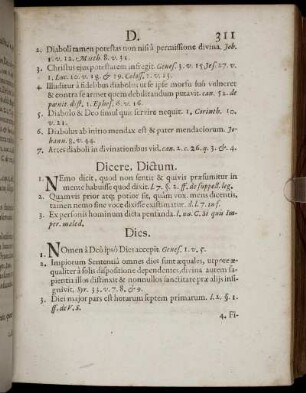 D. 311
2. Diaboli tamen potestas non nisi à permissione divina. Job.
1. v. 12. Matth. 8. v. 31.
3. Christus ejus potestatem infregit. Genes. 3. v. 15. Jes. 27. v.
1. Luc. 10. v. 19. & 19. Coloss. 1. v. 15.
4. Illuditur à fidelibus diabolus ut se ipse morsu suo vulneret
& contra se armet quem debilitandum putavit. can. 51. de
pœnit. dist. 1. Ephes. 6. v. 16.
5. Diabolo & Deo simul quis servire nequit. 1. Corinth. 10.
v. 21.
6. Diabolus ab initio mendax est & pater mendaciorum. Jo-
hann. 8. v. 44.
7. Artes diaboli in divinationibus vid. can. 2. c. 26. q. 3. & 4.
Dicere. Dictum.
1. NEmo dicit, quod non sentit & quivis præsumitur in
mente habuisse quod dixit. l. 7. §. 2. ff. de suppell. leg.
2. Quamvis prior atq; potior sit, quam vox mens dicentis,
tamen nemo sine voce dixisse existimatur. d. l. 7. in f.
3. Ex personis hominum dicta pensanda. l. un. C. si quis Im-
per. maled.
Dies.
1. NOmen à Deô ipsô Dies accepit. Genes. 1. v. 5.
2. Impiorum Sententiâ omnes dies sunt æquales, utpote æ-
qualiter à solis dispositione dependentes, divina autem sa-
pientia illos distinxit & nonnullos sanctitate præ alijs insi-
gnivit. Syr. 33. v. 7. 8. & 9.
3. Diei major pars est horarum septem primarum. l. 2. §. 1.
ff. de V. S.
4. Fi-